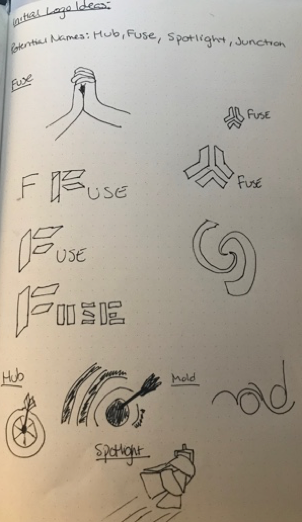 Initial Logo Ideas:
Potential Names: Hub, Fuse, Spotlight, Junction
Fuse
FUSE
FUSE
F FUSE
FUSE
FUSE
Hub
Mold
Spotlight